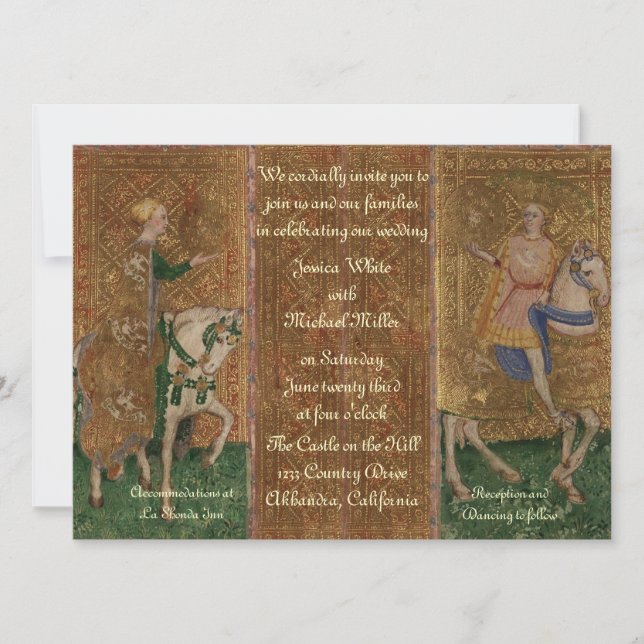 We cordially invite you to
join us and our families
in celebrating our wedding
Jessica White
with
Michael Miller
on Saturday
June twenty third
at four o'clock
The Castle on the Hill
1233 Country Drive
Akhandra, California
Accommodations at
La Shonda Inn
Reception and
Dancing to follow